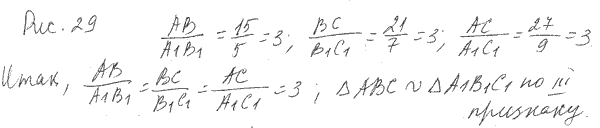 Рис. 29 AB/A1B1 = 15/5 = 3; BC/B1C1 = 21/7 = 3; AC/A1C1 = 27/9 = 3
Итак, AB/A1B1 = BC/B1C1 = AC/A1C1 = 3; △ABC ~ △A1B1C1 по III
признаку.